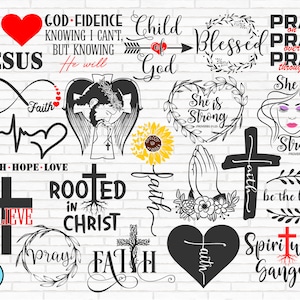 JESUS
GOD·FIDENCE
KNOWING I CAN'T,
BUT KNOWING
He will
Child
of
God
Blessed
PRA
PRA
PRA
Faith
She is
Strong
She is
Stro
FAITH·HOPE·LOVE
BELIEVE
ROOTED
IN
CHRIST
faith
faith
be the
Pray
FAITH
faith
Spiritu
Gangs